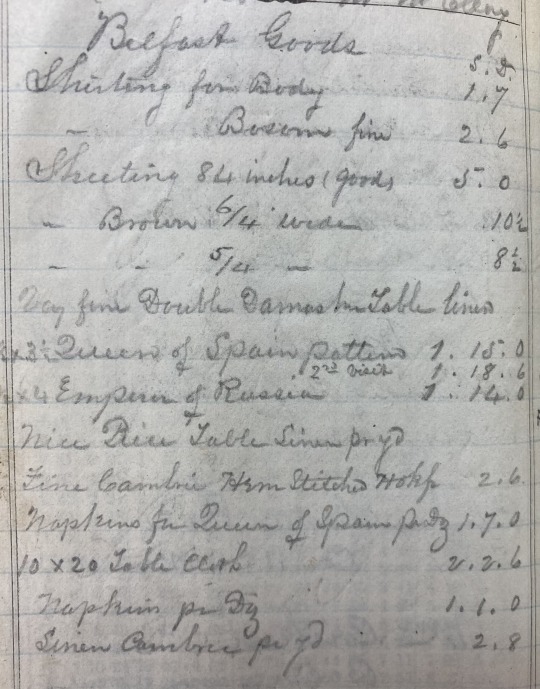 Belfast Goods
S. D.
Shirting for Body 1.7
" Bosom fine 2.6
Sheeting 84 inches (good) 5.0
" Brown 6/4 wide 10½
" " 5/4 " 8½
Vey fine Double Damask Table linen
x3½ Queen of Spain pattern 1.15.0
2nd visit 1.18.6
x4 Emperor of Russia 1.14.0
Nice Table Linen pr yd
Fine Cambric Hem Stitched Hdkf 2.6
Napkins for Queen of Spain pr Dz 1.7.0
10 x 20 Table Cloth 2.2.6
Napkins pr Dz 1.1.0
Linen Cambric pr yd 2.8